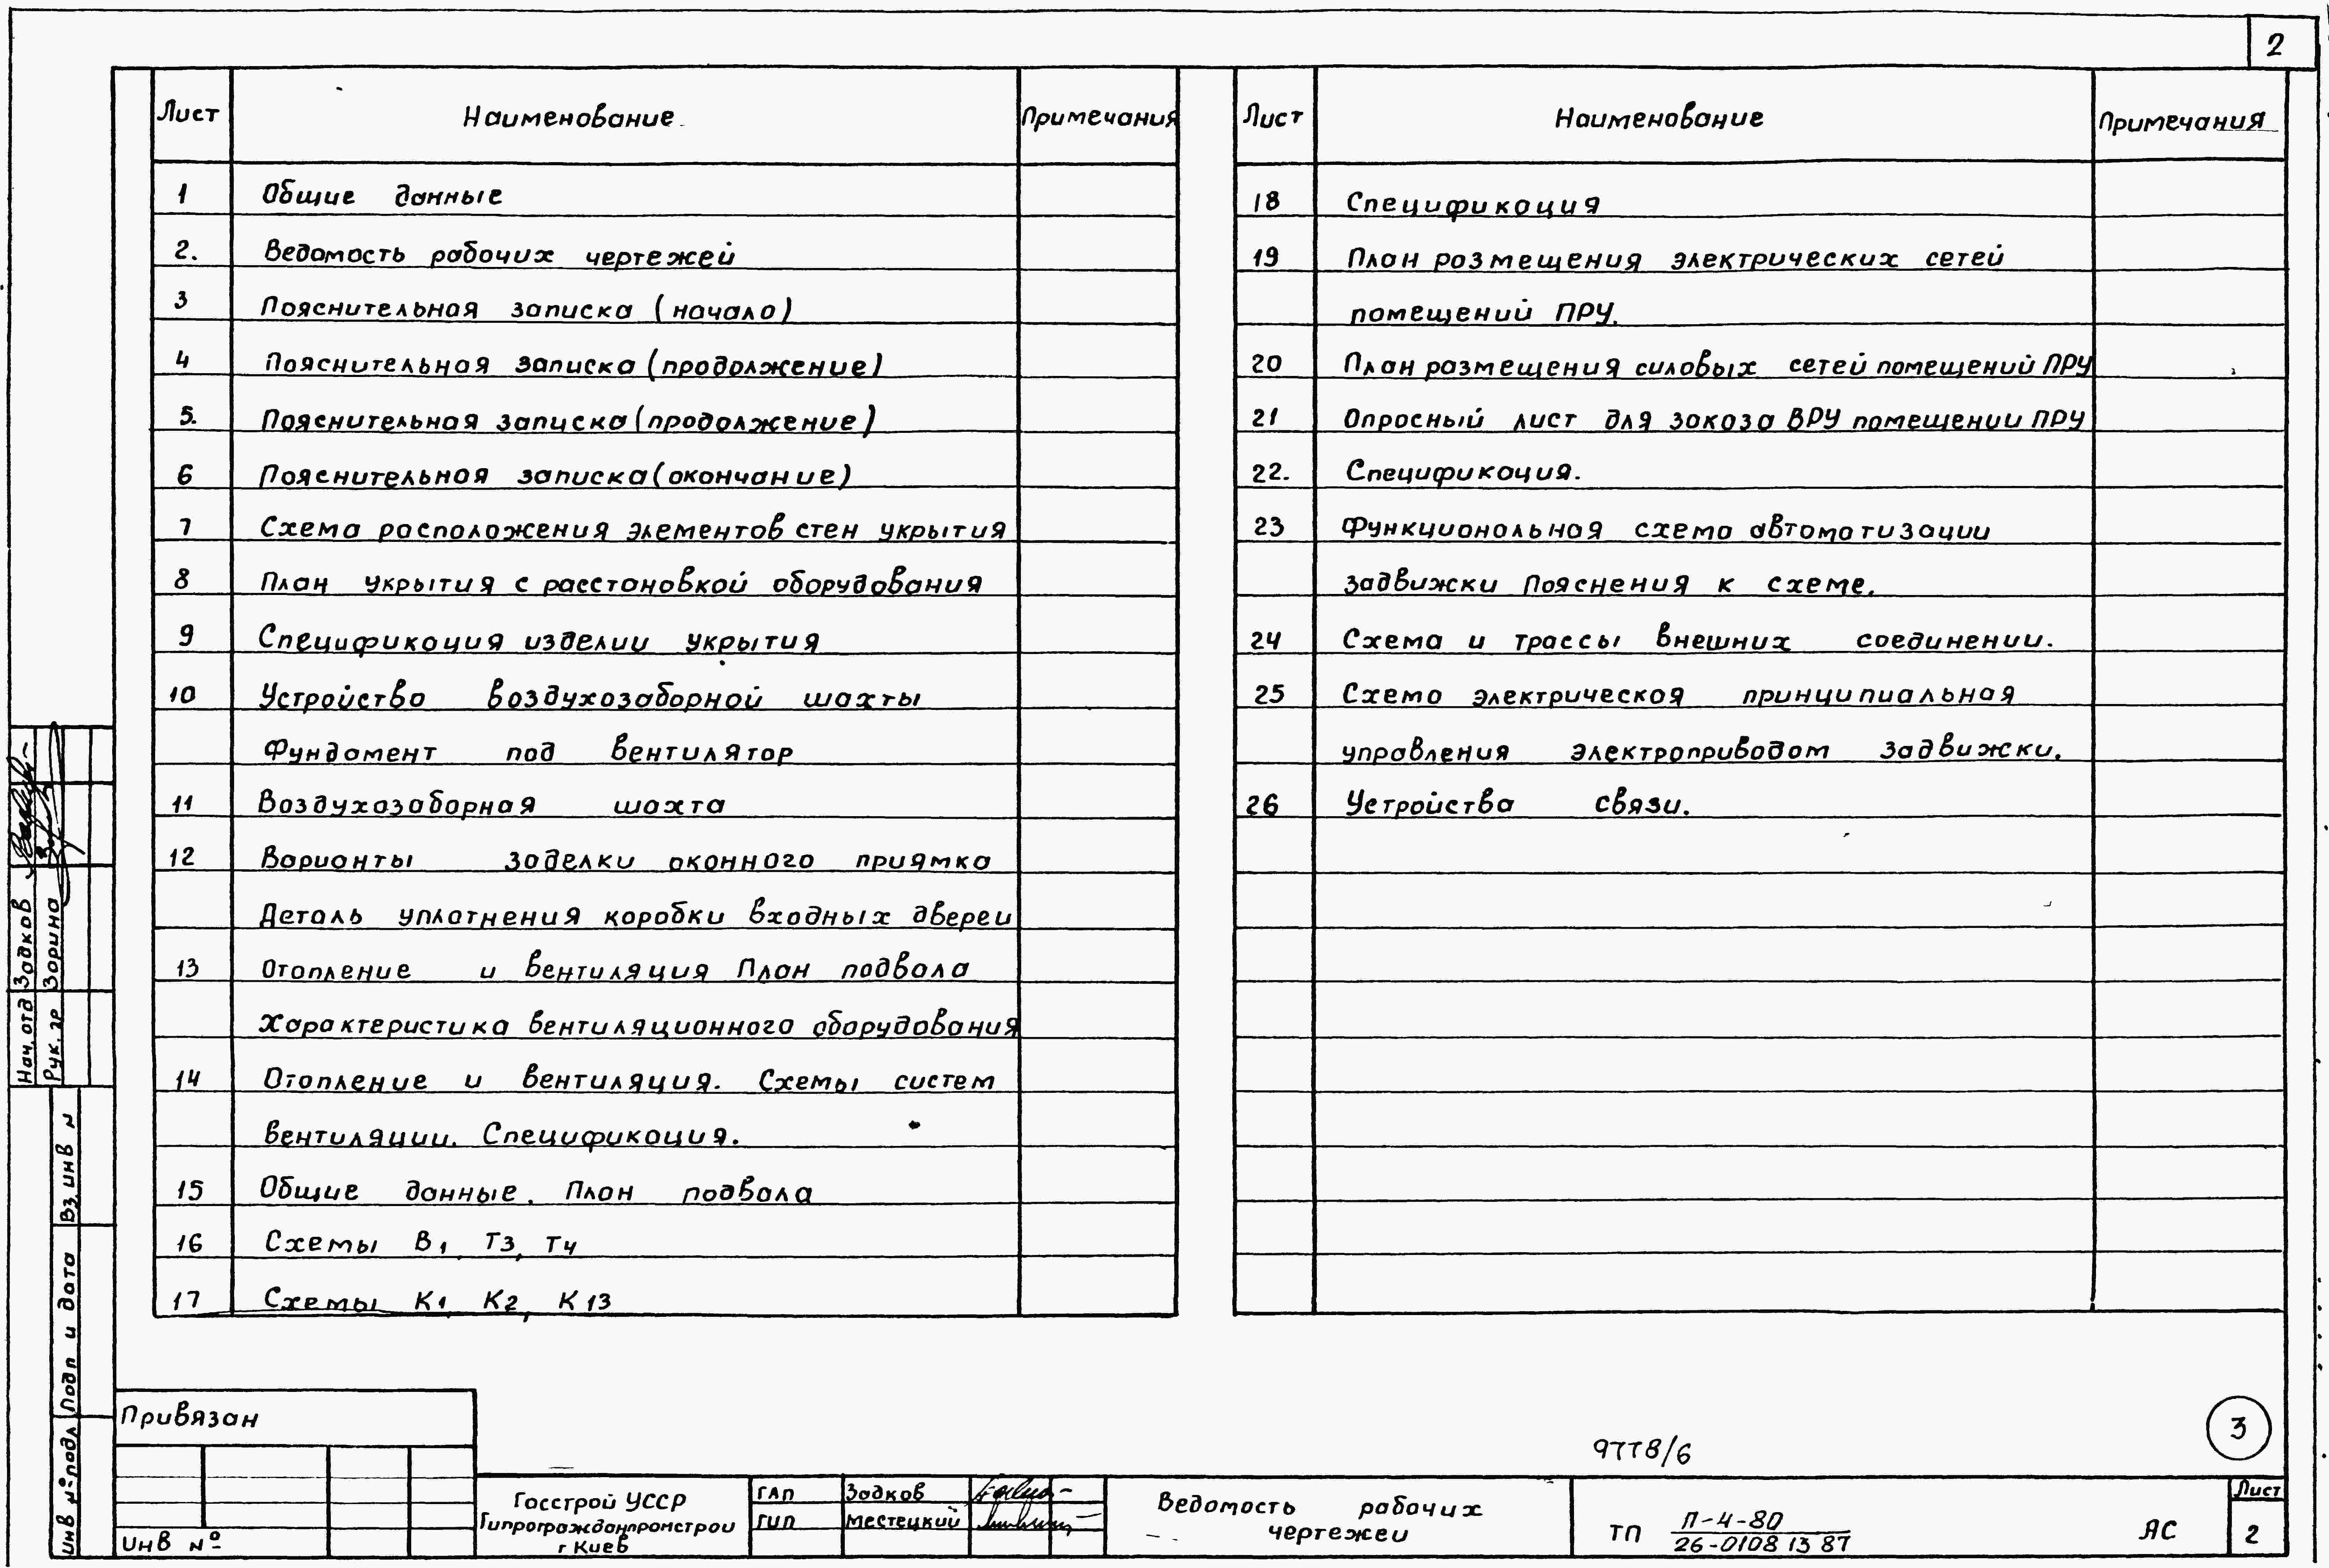 2
Лист Наименование Примечания
1 Общие данные
2. Ведомость рабочих чертежей
3 Пояснительная записка (начало)
4 Пояснительная записка (продолжение)
5. Пояснительная записка (продолжение)
6 Пояснительная записка (окончание)
7 Схема расположения элементов стен укрытия
8 План укрытия с расстановкой оборудования
9 Спецификация изделии укрытия
10 Устройство воздухозаборной шахты
Фундамент под вентилятор
11 Воздухозаборная шахта
12 Варианты заделки оконного приямка
Деталь уплотнения коробки входных двереи
13 Отопление и вентиляция План подвала
Характеристика вентиляционного оборудования
14 Отопление и вентиляция. Схемы систем
вентиляции. Спецификация.
15 Общие данные. План подвала
16 Схемы В1, Т3, Т4
17 Схемы К1, К2, К13
Лист Наименование Примечания
18 Спецификация
19 План размещения электрических сетей
помещений ПРУ.
20 План размещения силовых сетей помещений ПРУ
21 Опросный лист для заказа ВРУ помещении ПРУ
22. Спецификация.
23 Функциональная схема автоматизации
задвижки Пояснения к схеме.
24 Схема и трассы внешних соединении.
25 Схема электрическая принципиальная
управления электроприводом задвижки.
26 Устройства связи.
Нач. отд Задков
Рук. гр Зорина
Вз инв N
Подп и дата
Инв № подл
Привязан
Инв №
3
9778/6
Госстрой УССР
Гипрогражданпромстрои
г Киев
ГАП Задков
ГИП Местецкий
Ведомость рабочих
чертежеи
ТП П-4-80
26-0108 13 87
АС
Лист
2